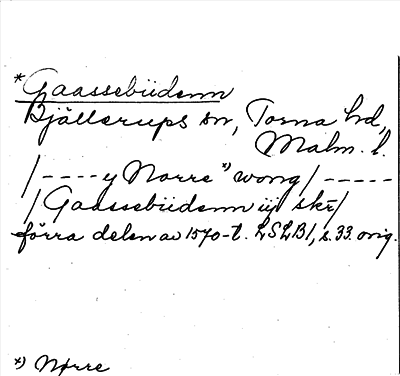 *Gaassebüdenn
Bjällerups sn, Torna hd,
Malm. l.
/----y Norre *) wong/-----
/Gaassebüdenn iij skr/
förra delen av 1570-t. LSLB1, s. 33. orig.
*) Nørre